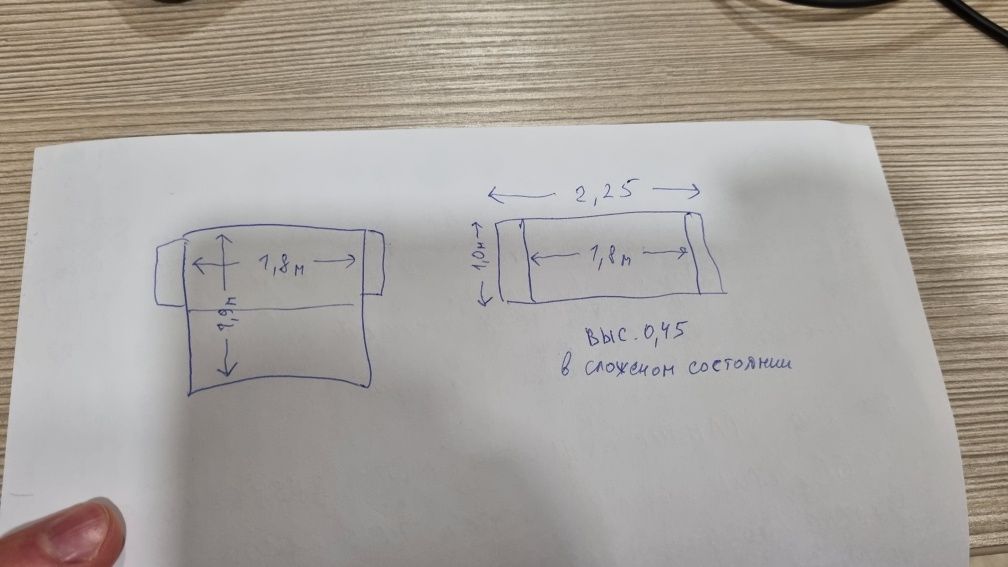 1,8м
1,9м
2,25
1,0м
1,8м
выс. 0,45
в сложеном состоянии